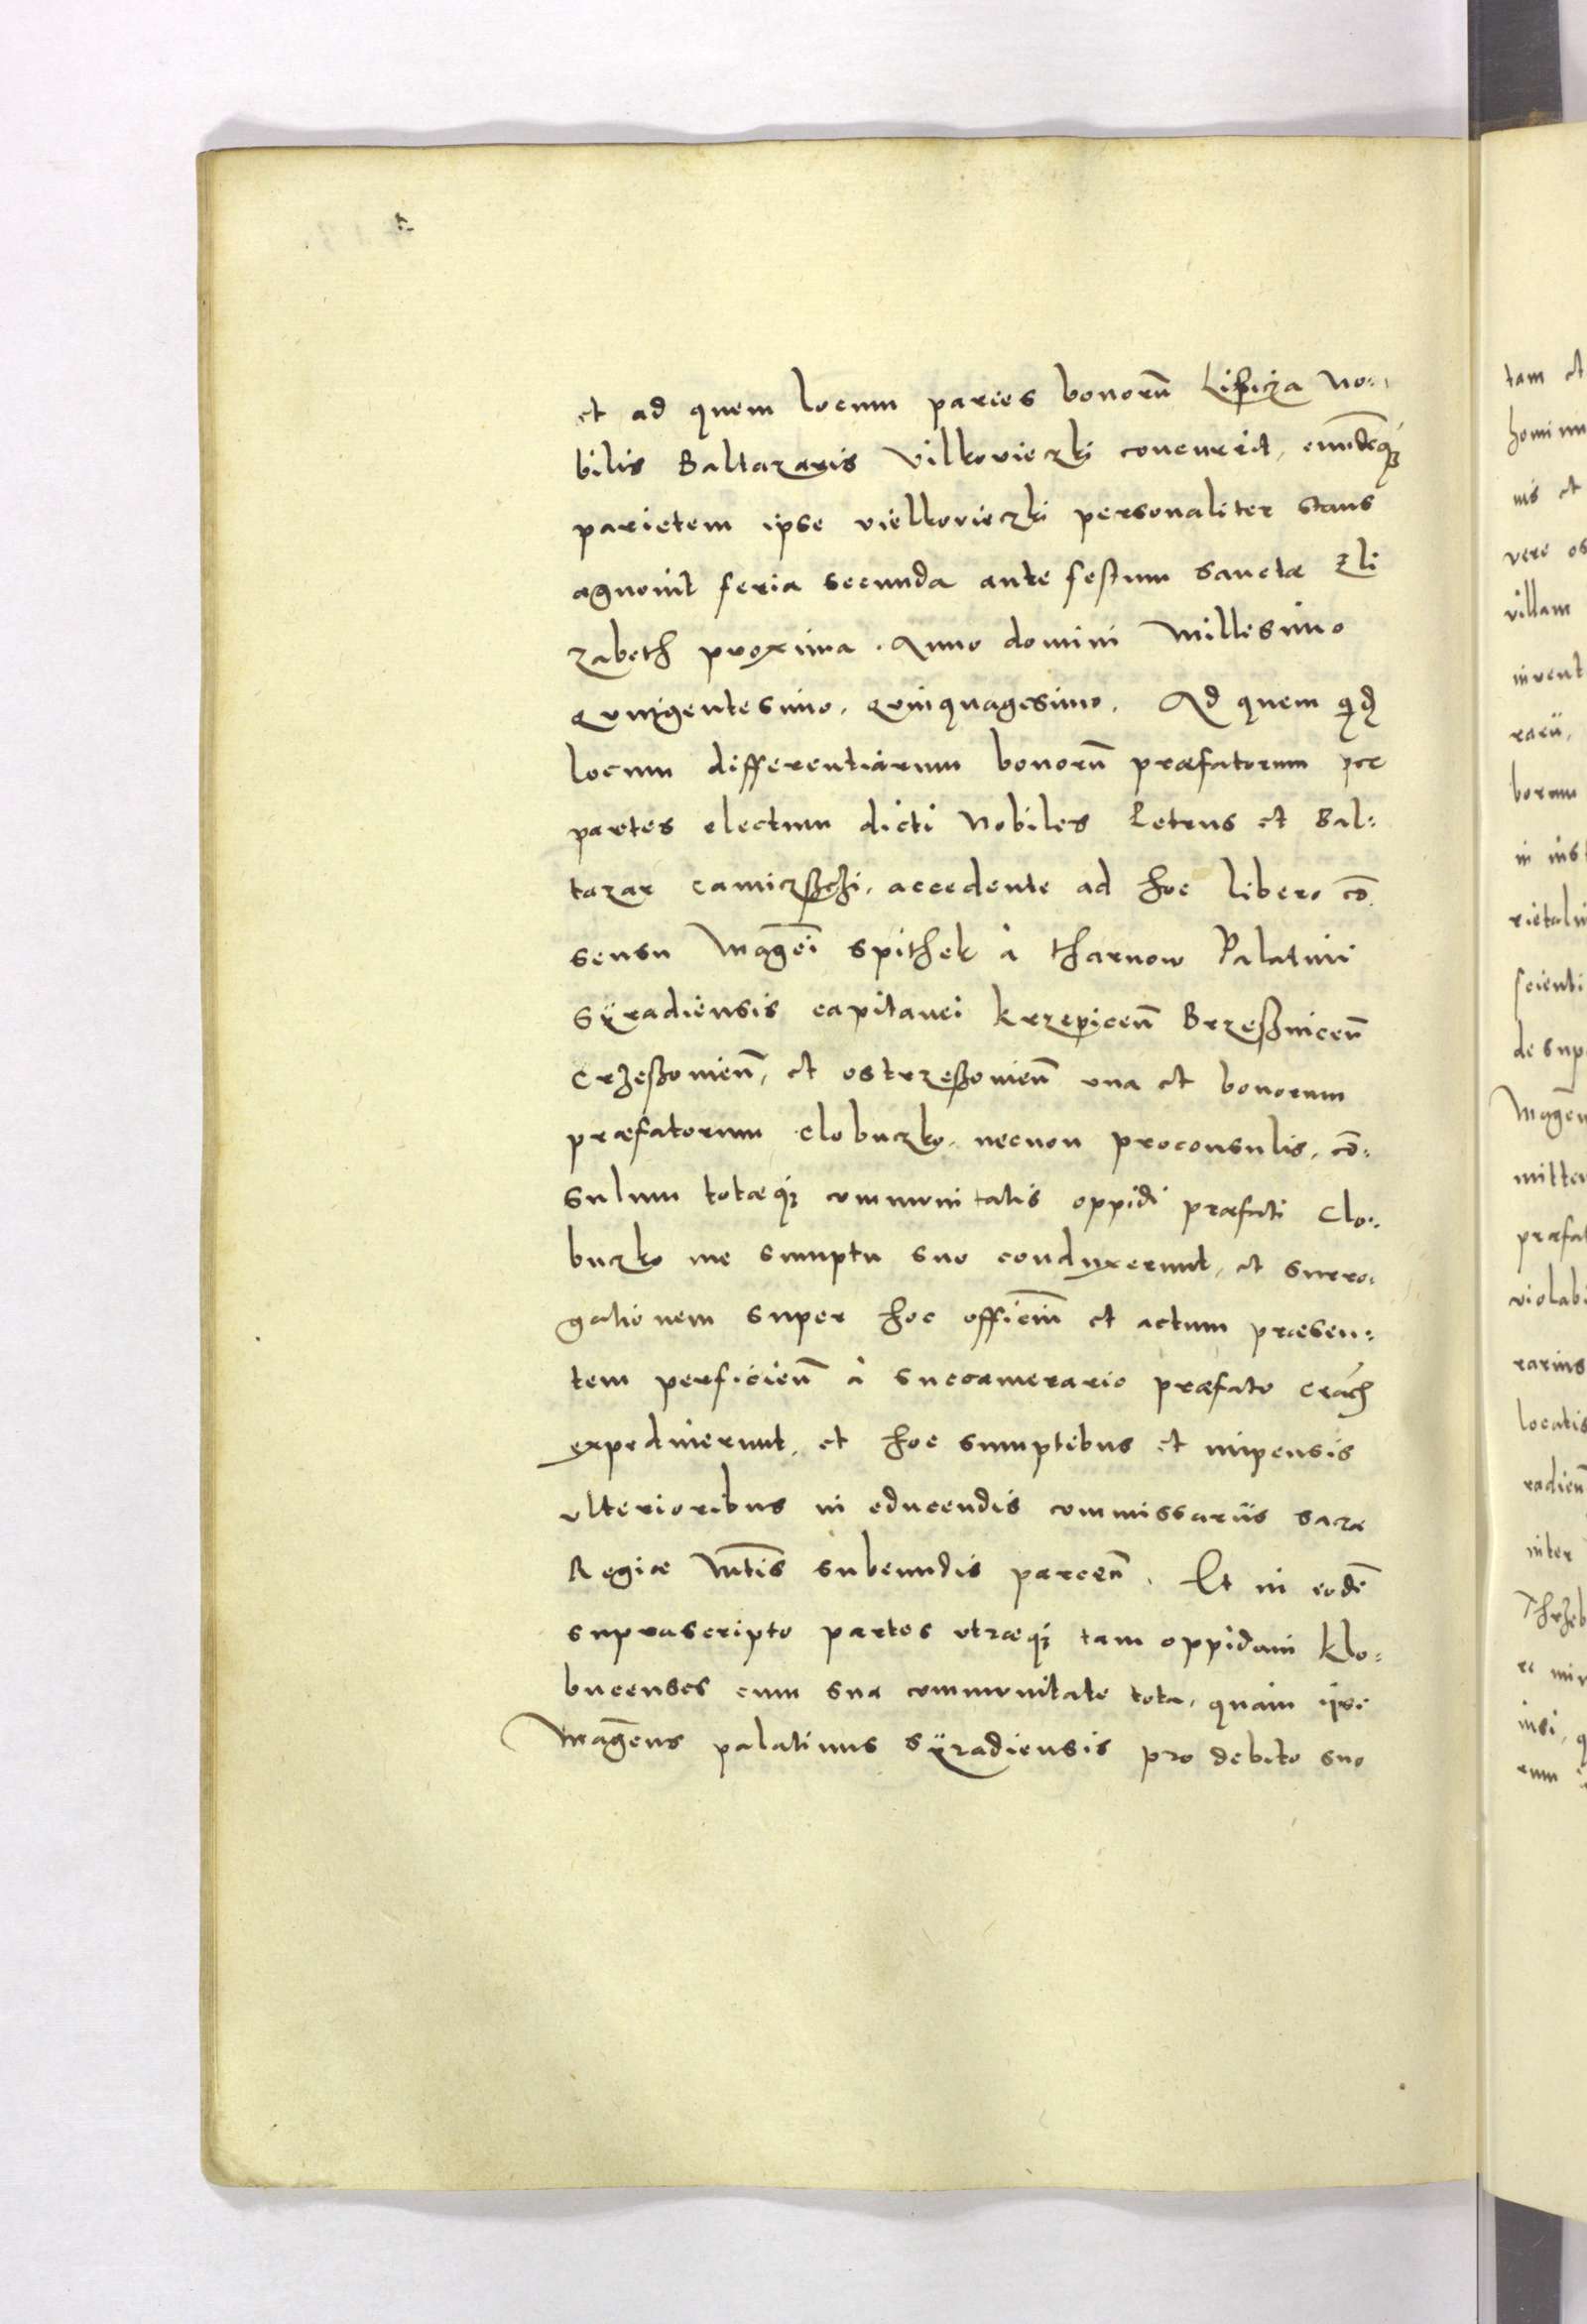 et ad quem locum paries bonorū Lipicza No=
bilis Baltazaris Vilkovieczki concurrit, eundēq;
parietem ipse vielkovieczki personaliter stans
agnovit feria secunda ante festum sanctæ Eli
zabeth proxima. Anno domini Millesimo
Quingentesimo, Quinquagesimo. Ad quem qd
locum differentiarum bonorū præfatorum per
partes electum dicti Nobiles Petrus et Bal=
tazar accedente ad hoc libero cō
sensu Magci Spithek à Tharnow Palatini
Syradiensis capitanei Krzepiceñ Brzesznniceñ
et ostrzeszovieñ una et bonorum
præfatorum Clobuczko, necnon proconsulis, cō=
sulum totæq; communitatis oppidi præfati Clo=
buczko me sumptu suo conduxerunt, et surro=
gationem super hoc officiū et actum præsen=
tem perficieñ à succamerario præfato Crach
expediverunt, et hoc sumptibus et impensis
ulterioribus in educendis commissariis sacræ
Regiæ Mtis subeundis parceñ. Et in eodē
suprascripto partes utræq; tam oppidani Klo=
bucenses cum sua communitate tota, quàm ipse
Magcus palatinus Syradiensis pro debito suo
tam et
homi
nis et
vere os
villam
invent
borum
in inst
scienti
de sup
Magcu
mitta
præfat
violabi
rarius
locatis
radieñ
inter
Thrzeb